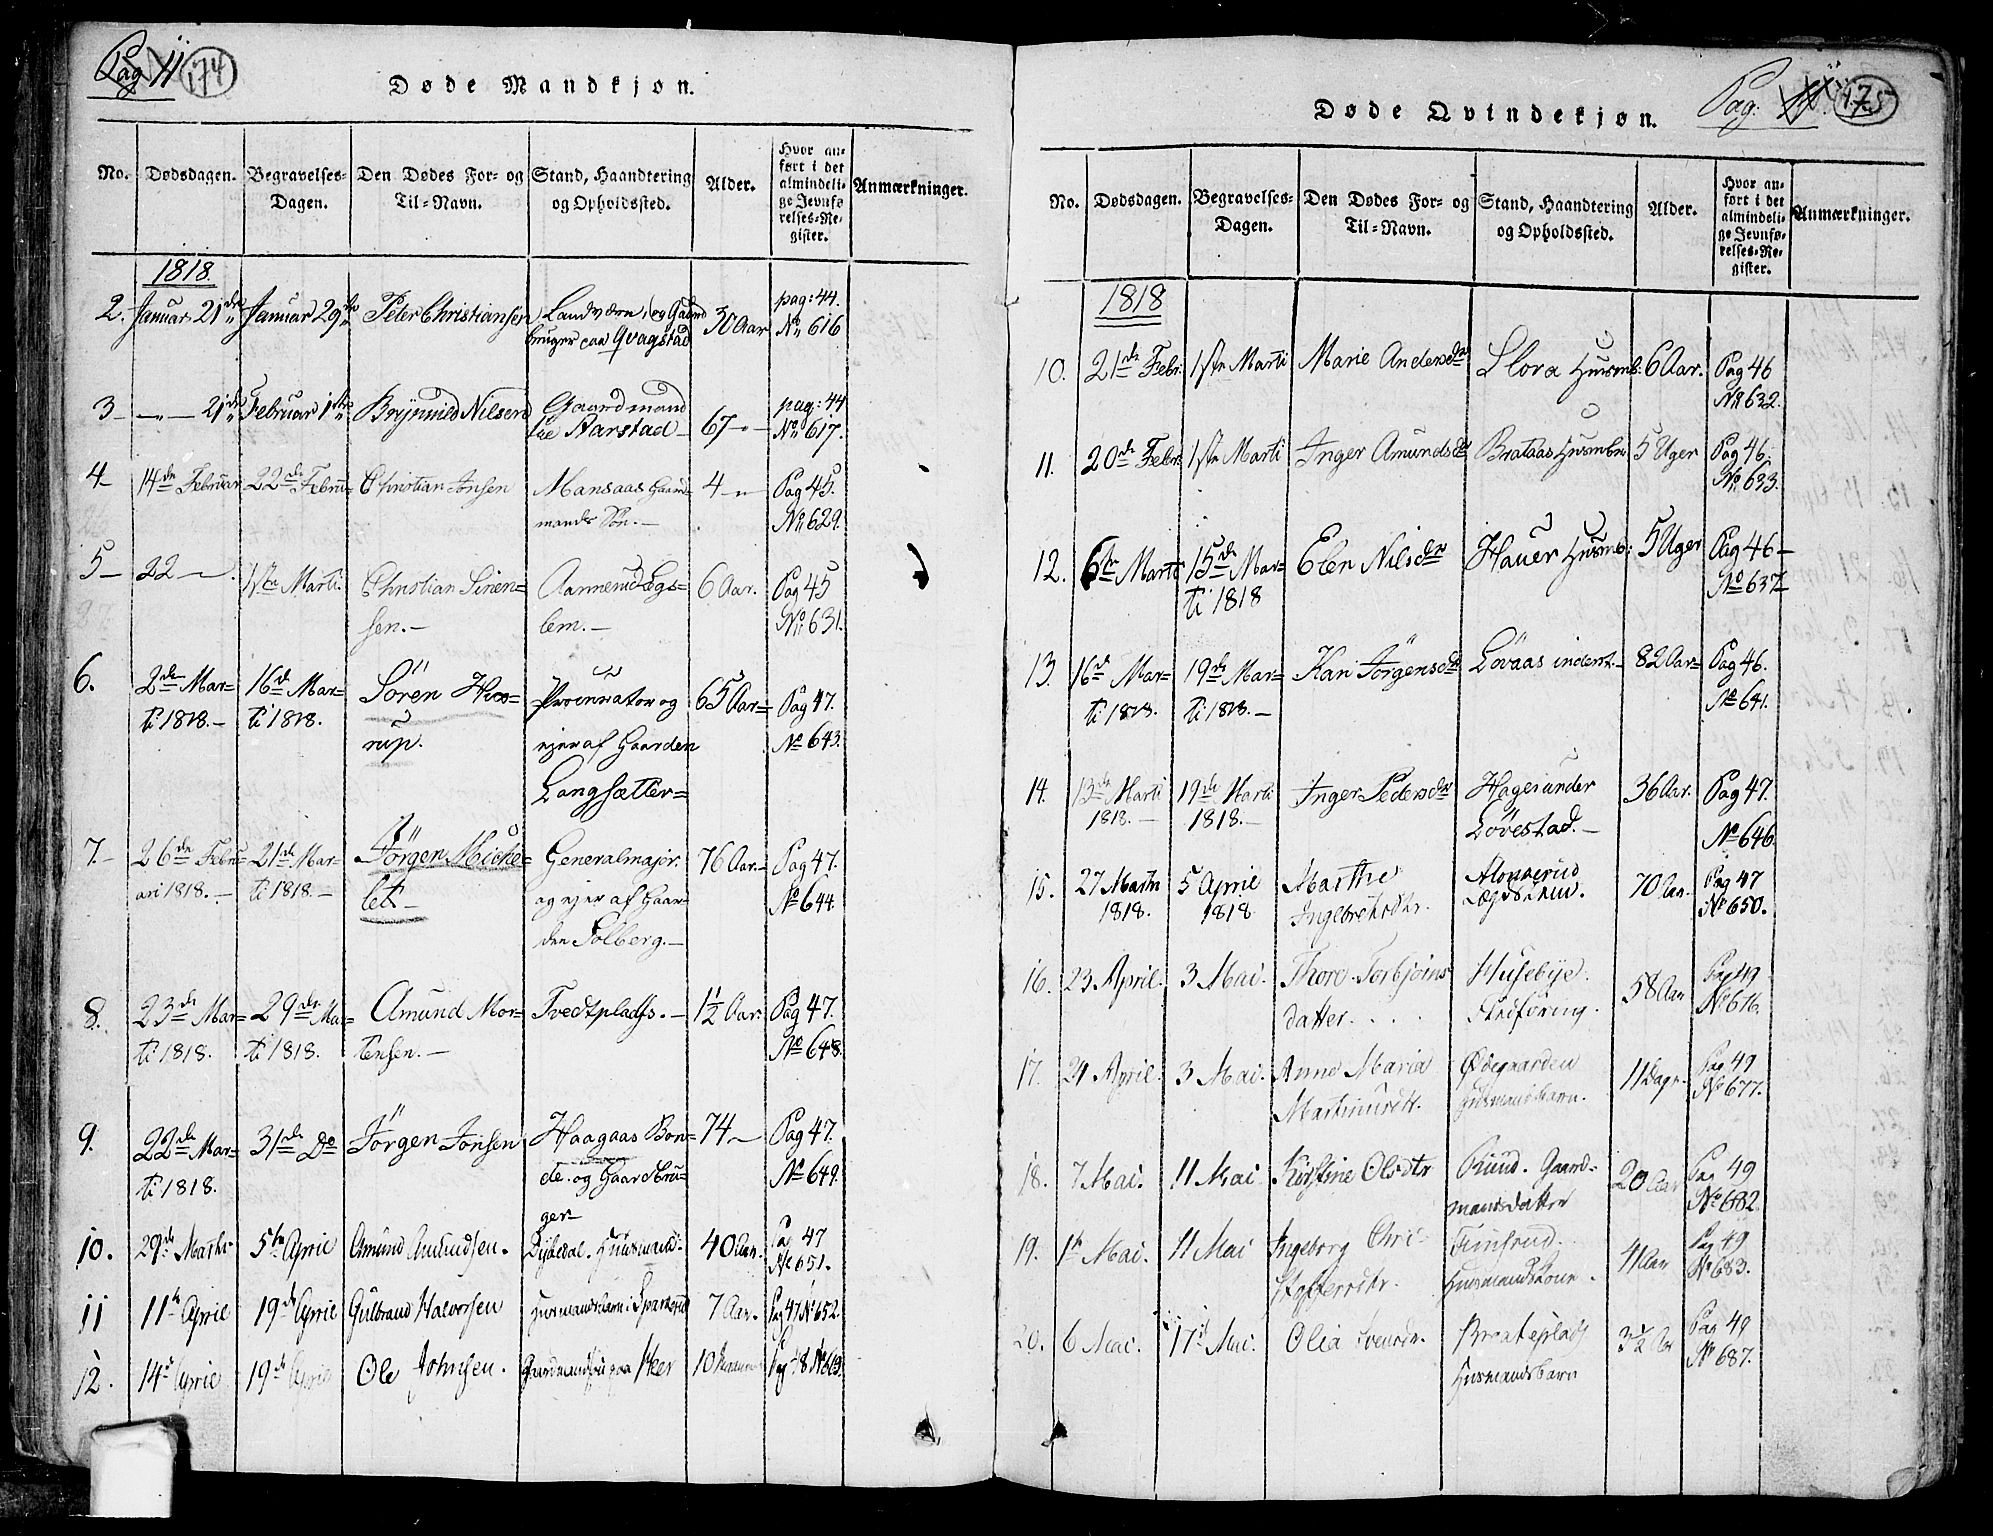 Pag 11 174
Døde Mandkjøn.
No. Dødsdagen. Begravelses-Dagen. Den Dødes For- og Til-Navn. Stand, Haandtering og Opholdssted. Alder. Hvor anført i det almindelige Jevnførelses-Register. Anmærkninger.
1818.
2. Januar 21de Januar 29de Peter Christiansen Landværn, og Gaardbruger paa Qvagstad 30 Aar pag: 44. No 616
3 — 21de Februar 1ste Brÿnnild Nilsen Gaardmand paa Harstad 67 pag: 44 No 617.
4 14de Februar 22de Febru- Christian Jonsen Mansaas Gaardmands Søn. 4 Pag 45. No 629.
5 22 1ste Marti Christian Sirensen. Aannerud Legslem. 6 Aar. Pag 45 No 631.
6. 2de Marti 1818. 16de Marti 1818. Sören Hiorup. Procurator og ejer af Gaarden Langsætter 65 Aar Pag 47. No 643.
7. 26de Februari 1818. 21de Marti 1818. Jörgen Michelet Generalmajor. og ejer af Gaarden Solberg. 76 Aar Pag 47. No 644.
8. 23de Marti 1818. 29de Marti 1818. Amund Mortensen. Tvedtpladss. 1½ Aar. Pag 47. No 648.
9. 22de Marti 1818. 31de Do Jörgen Jonsen Haagaas Bonde. og Gaardbruger 74 Pag 47. No 649.
10. 29de Marti 5te Aprie Amund Amundsen. Dybedal. Huusmand. 40 Aar. Pag 47 No 651.
11 11te Aprie 19de Aprie Gulbrand Halvorsen Husmandsbarn i Sparkerud 7 Aar. Pag 47 No 652.
12. 14de Aprie 19de Aprie Ole Johnsen. Gaardmand paa Heer 10
Pag. 175
Døde Qvindekjøn.
No. Dødsdagen. Begravelses-Dagen. Den Dødes For- og Til-Navn. Stand, Haandtering og Opholdssted. Alder. Hvor anført i det almindelige Jevnførelses-Register. Anmærkninger.
1818
10. 21de Febr. 1ste Marti Marie Andersdr Slora Husmb. 6 Aar. Pag 46 No 632.
11. 20de Febr. 1ste Marti Inger Amundsdr Brataas Husmbn 5 Uger Pag 46. No 633.
12. 6te Marti 15de Marti 1818 Elen Nilsdr Hauer Husmb: 5 Uger Pag 46 No 637
13. 16de Marti 1818. 19de Marti 1818. Kari Jörgensdr Lövaas inderst. 82 Aar Pag 46. No 641.
14. 13de Marti 1818. 19de Marti 1818. Inger Pedersdr Hagen under Lövestad. 36 Aar. Pag 47. No 646
15. 27 Marti 1818. 5 Aprie 1818 Marthe Ingebretsdtr. Monnerud Lægdslem. 70 Aar. Pag 47 No 650.
16. 23 April. 3 Mai. Thore Torbjörnsdatter. Husebye. Fredföring. 58 Aar Pag 49 No 676.
17. 21 April. 3 Mai. Anne Maria Martinusdt. Ødegaarden Husmandsbarn. 11 Dage. Pag 49 No 677.
18. 7 Mai. 11 Mai Kirstine Olsdtr Rund. Gaardmandsdatter 20 Aar Pag 49 No 682.
19. 1te Mai. 11 Mai Ingeborg Christoffersdtr. Finsrud. Husmandskone. 41 Aar Pag 49 No 683.
20. 6 Mai. 17de Mai. Olia Svensdr. Braateplads Husmandsbarn 3½ Aar Pag 49 No 687.